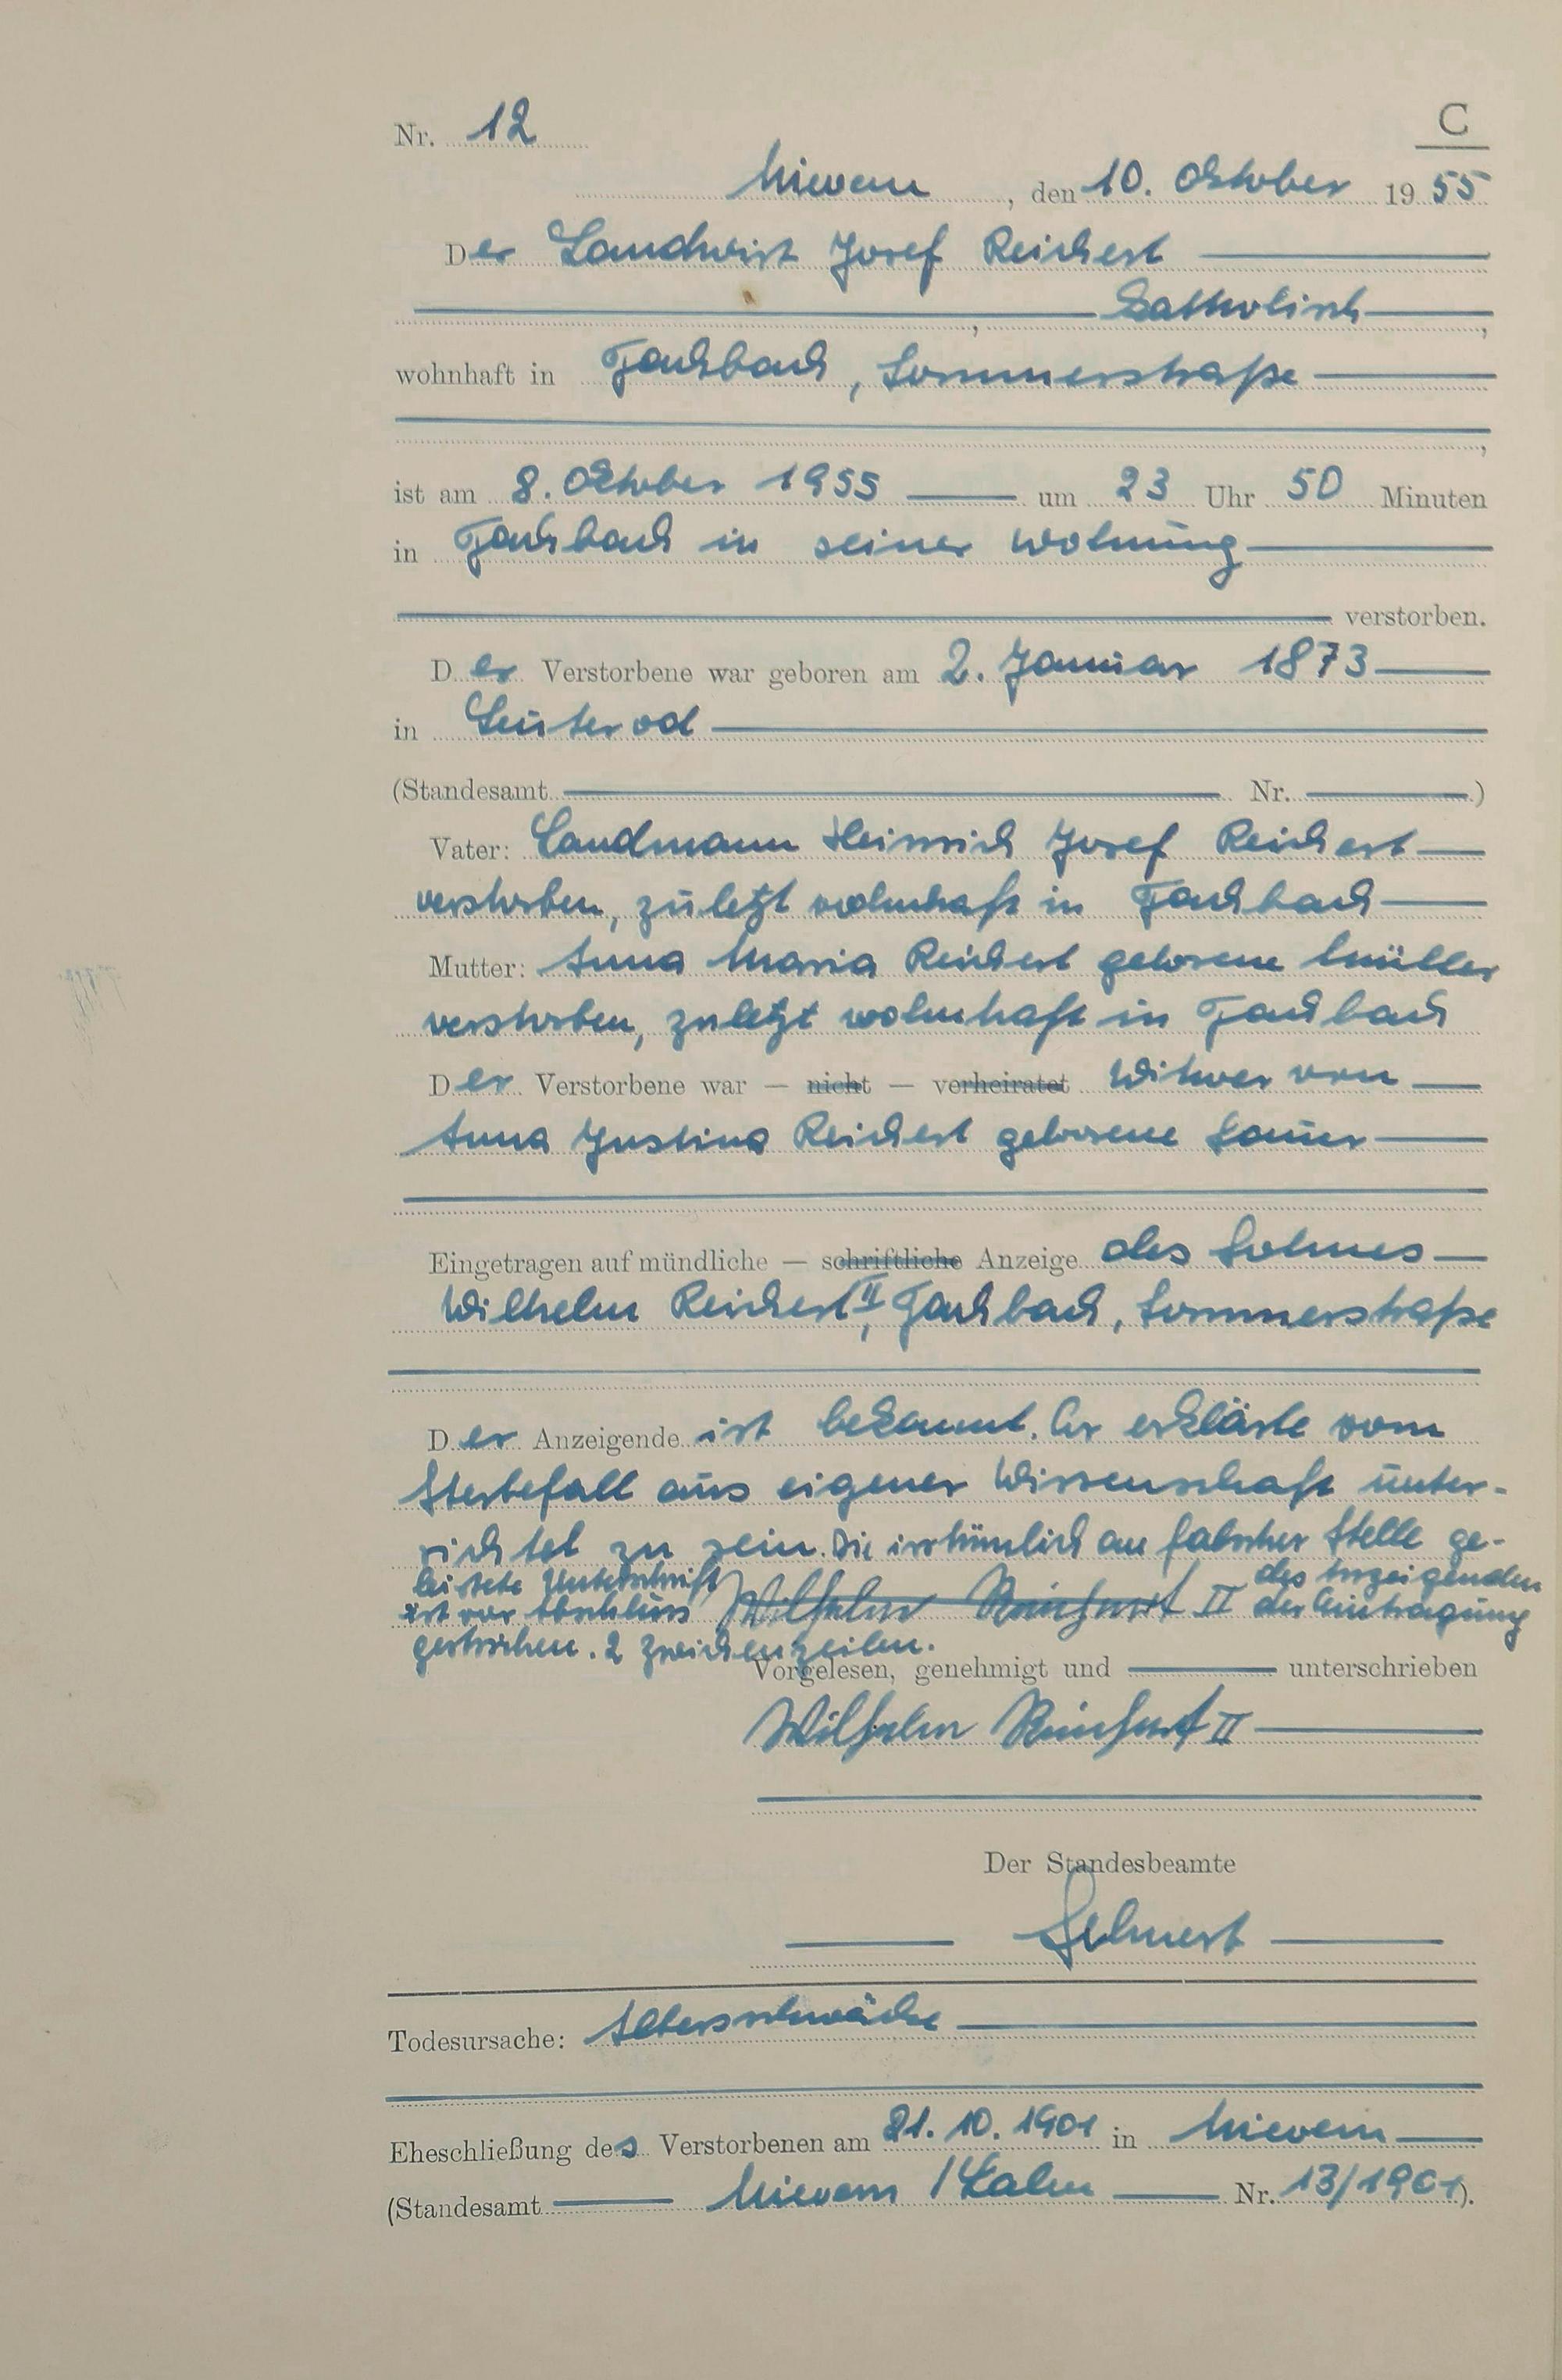 C
Nr. 12
Nievern, den 10. Oktober 1955
Der Landwirt Josef Reichert
, katholisch,
wohnhaft in Fachbach, Sommerstraße
,
ist am 8. Oktober 1955 um 23 Uhr 50 Minuten
in Fachbach in seiner Wohnung
verstorben.
Der Verstorbene war geboren am 2. Januar 1873
in Leuterod
(Standesamt Nr. )
Vater: Landmann Heinrich Josef Reichert
verstorben, zuletzt wohnhaft in Fachbach
Mutter: Anna Maria Reichert geborene Müller
verstorben, zuletzt wohnhaft in Fachbach
Der Verstorbene war — nicht — verheiratet Witwer von
Anna Justina Reichert geborene Sauer
Eingetragen auf mündliche — schriftliche Anzeige des Sohnes
Wilhelm Reichert II, Fachbach, Sommerstraße
Der Anzeigende ist bekannt. Er erklärte vom
Sterbefall aus eigener Wissenschaft unter-
richtet zu sein. Die irrtümlich an falscher Stelle ge-
leistete Unterschrift des Anzeigenden
ist vor Abschluss Wilhelm Reichert II der Eintragung
gestrichen. 2 Zwischenzeilen.
Vorgelesen, genehmigt und unterschrieben
Wilhelm Reichert II
Der Standesbeamte
Todesursache: Altersschwäche
Eheschließung des Verstorbenen am 21. 10. 1901 in Nievern
(Standesamt Nievern / Lahn Nr. 13/1901).